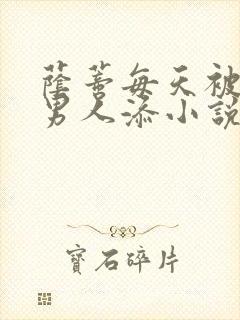 蔭蒂每天被
男人添小說
寶石碎片